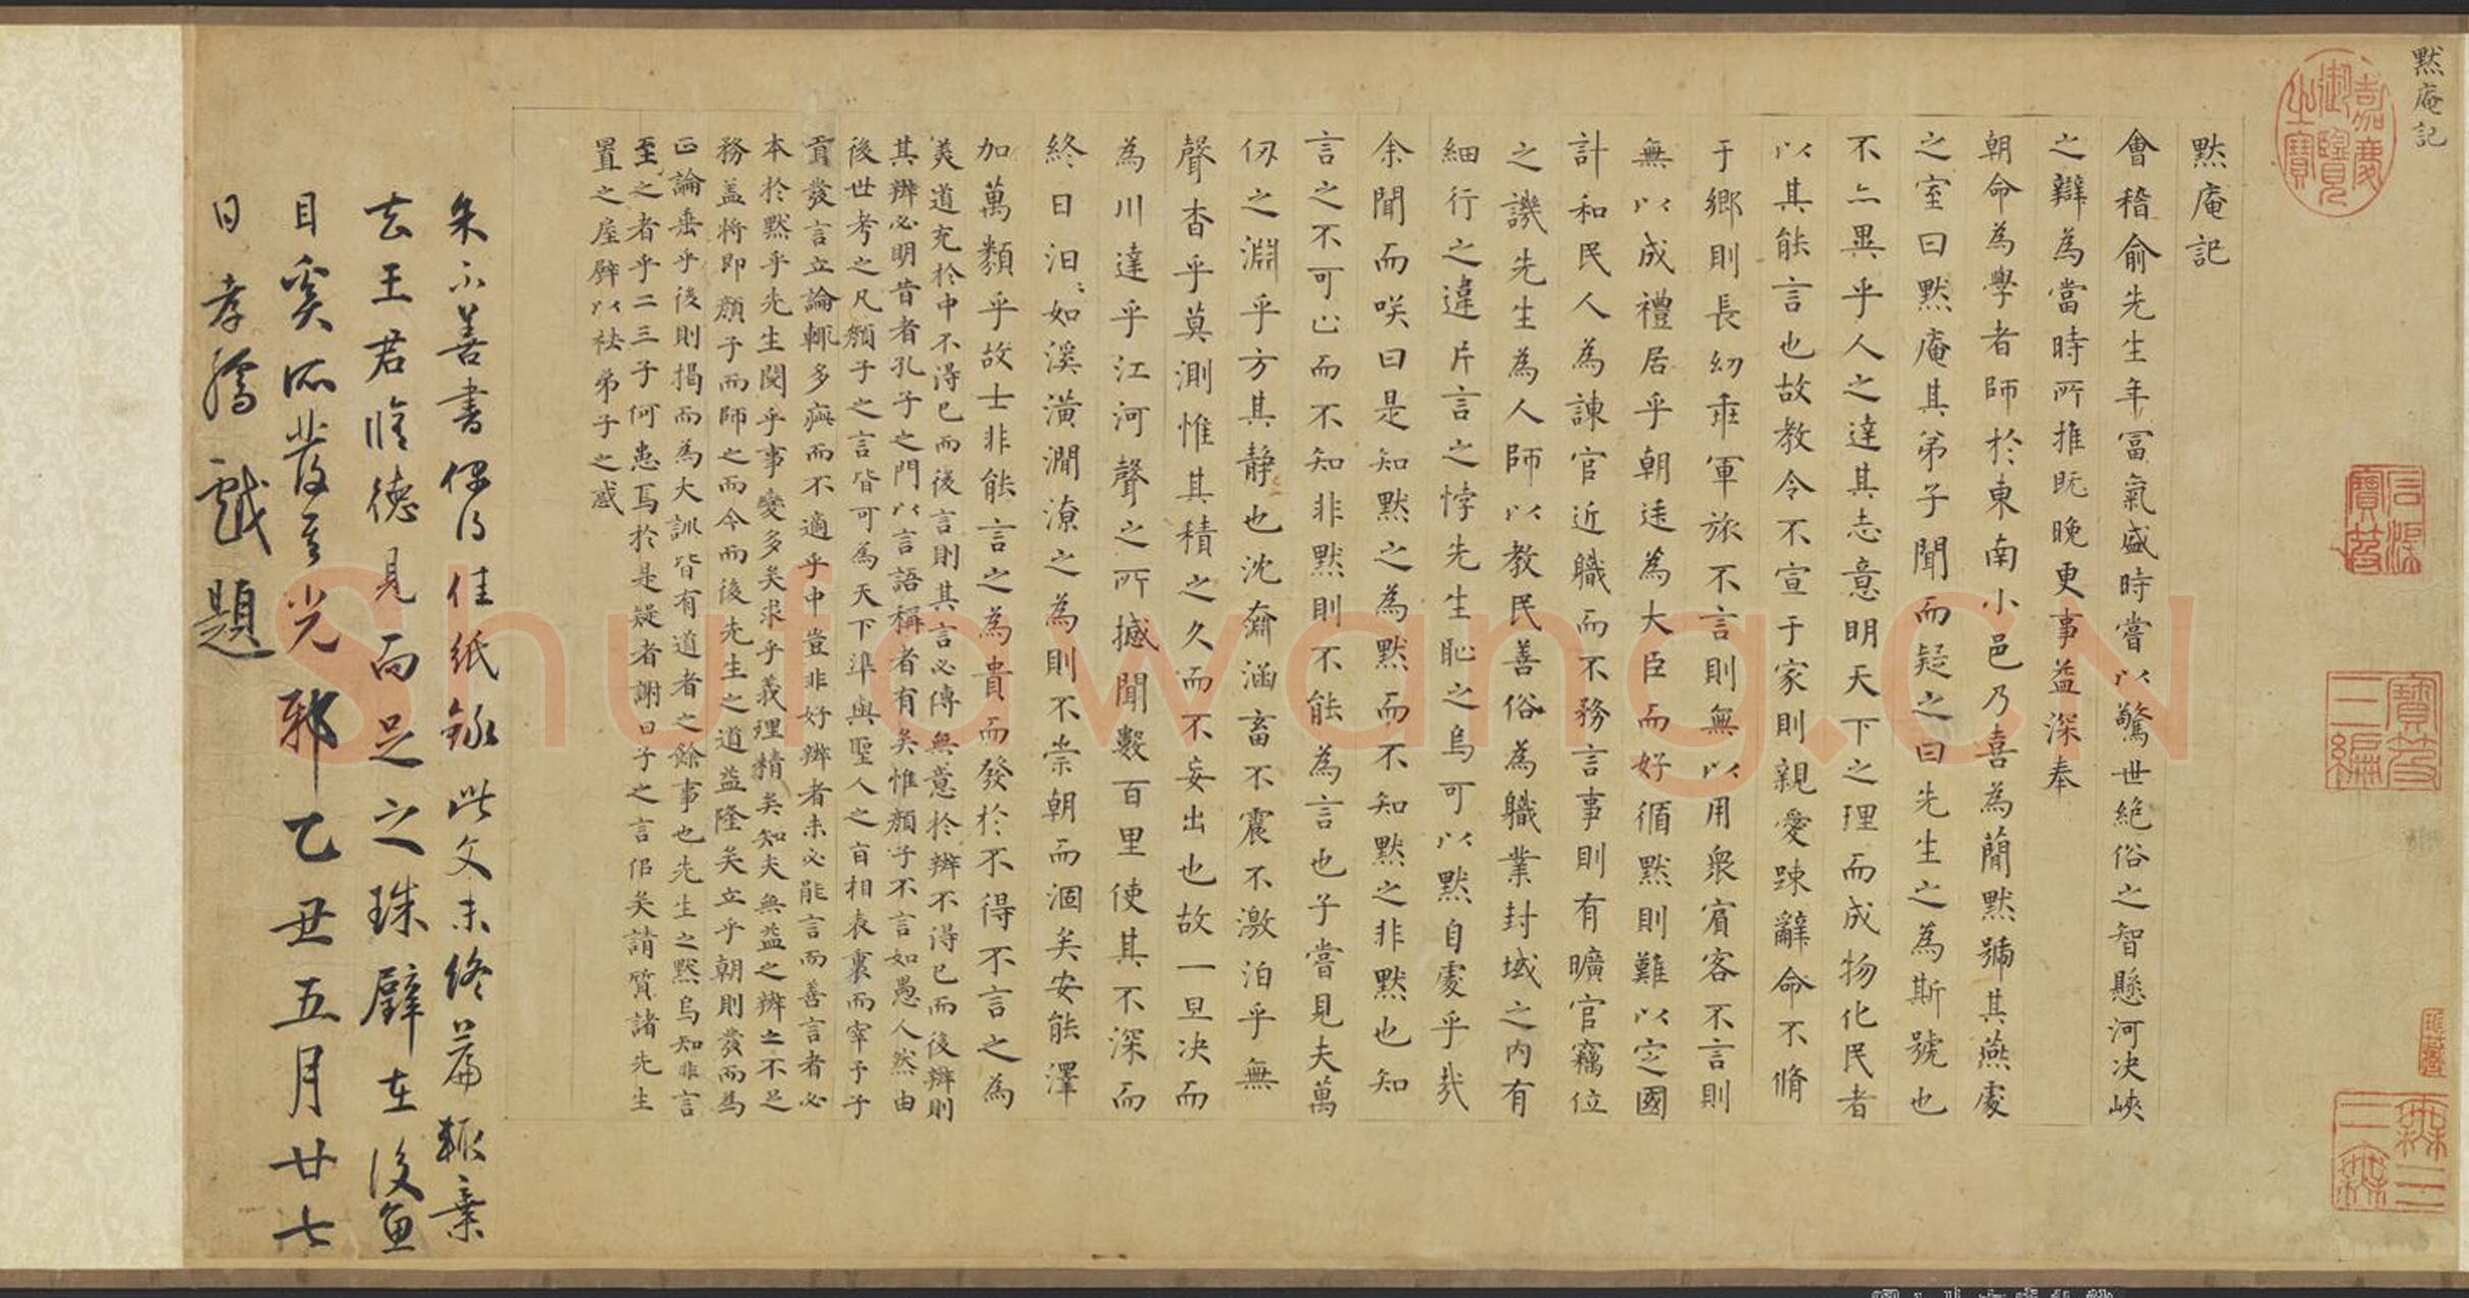 默庵記
嘉慶御覽之寶
石渠寶笈
寶笈三編
默庵記
會稽俞先生年冨氣盛時嘗以驚世絶俗之智懸河決峽
之辯為當時所推既晚更事益深奉
朝命為學者師於東南小邑乃喜為蕑默號其燕處
之室曰默庵其弟子聞而疑之曰先生之為斯號也
不亦異乎人之達其志意明天下之理而成物化民者
以其能言也故教令不宣于家則親愛踈辭命不脩
于鄉則長幼乖軍旅不言則無以用衆賓客不言則
無以成禮居乎朝廷為大臣而好循默則難以定國
計和民人為諫官近職而不務言事則有曠官竊位
之譏先生為人師以教民善俗為職業封域之内有
細行之違片言之悖先生恥之烏可以默自處乎哉
余聞而咲曰是知默之為默而不知默之非默也知
言之不可已而不知非默則不能為言也子嘗見夫萬
仞之淵乎方其静也沈齋涵畜不震不激泊乎無
聲杳乎莫測惟其積之久而不妄出也故一旦决而
為川達乎江河聲之所撼聞數百里使其不深而
終日汩汩如溪潢澗潦之為則不崇朝而涸矣安能澤
加萬類乎故士非能言之為貴而發於不得不言之為
美道充於中不得已而後言則其言必傳無意於辨不得已而後辨則
其辨必明昔者孔子之門以言語稱者有矣惟顏子不言如愚人然由
後世考之凡顏子之言皆可為天下準與聖人之言相表裏而宰予子
貢發言立論輒多疵而不適乎中豈非好辨者未必能言而善言者必
本於默乎先生閱乎事變多矣求乎義理精矣知夫無益之辨之不足
務盖将即顏子而師之而今而後先生之道益隆矣立乎朝則發而為
正論垂乎後則揭而為大訓皆有道者之餘事也先生之默烏知非言
至之者乎二三子何患焉於是疑者謝曰子之言佀矣請質諸先生
置之屋壁以袪弟子之惑
朱不善書偶得佳紙錄此文未終篇輒棄
去王君脩德見而足之珠璧在後魚
目奚所發其光邪乙丑五月廿七
日孝孺戲題
Shufawang.CN